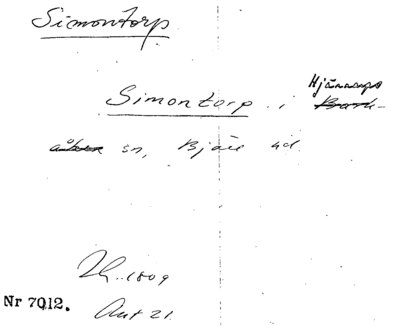 Simontorp
Simontorp i Hjärnarps
sn, Bjäre hd.
1809
Nr 7012. Ant 21.